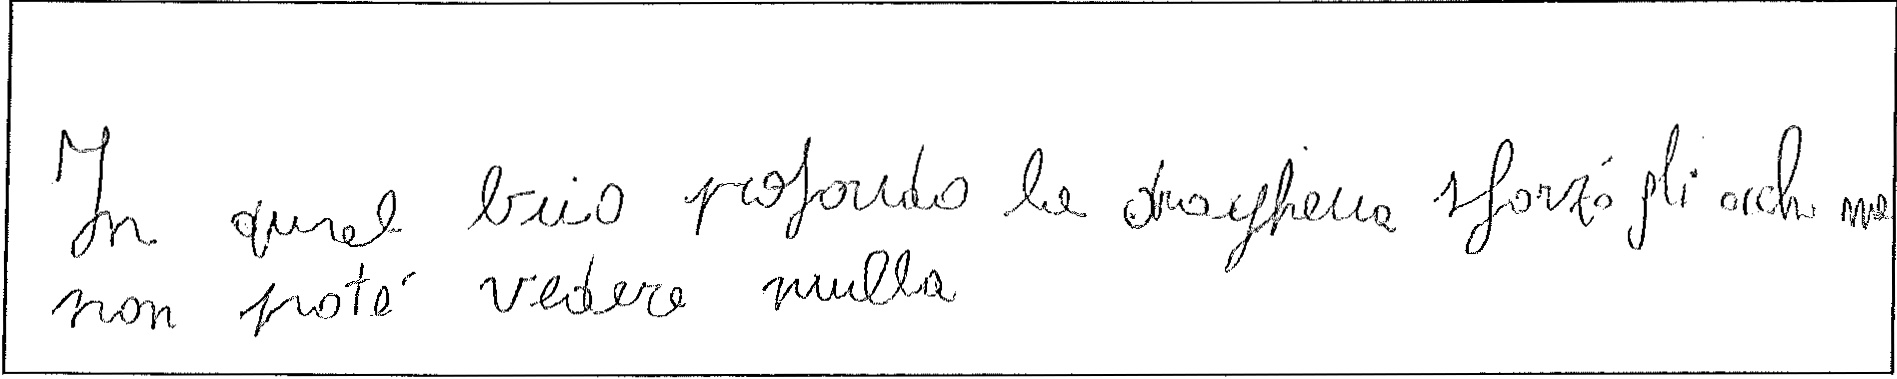 In quel buio profondo la draghetta sforzó gli occhi ma
non poté vedere nulla